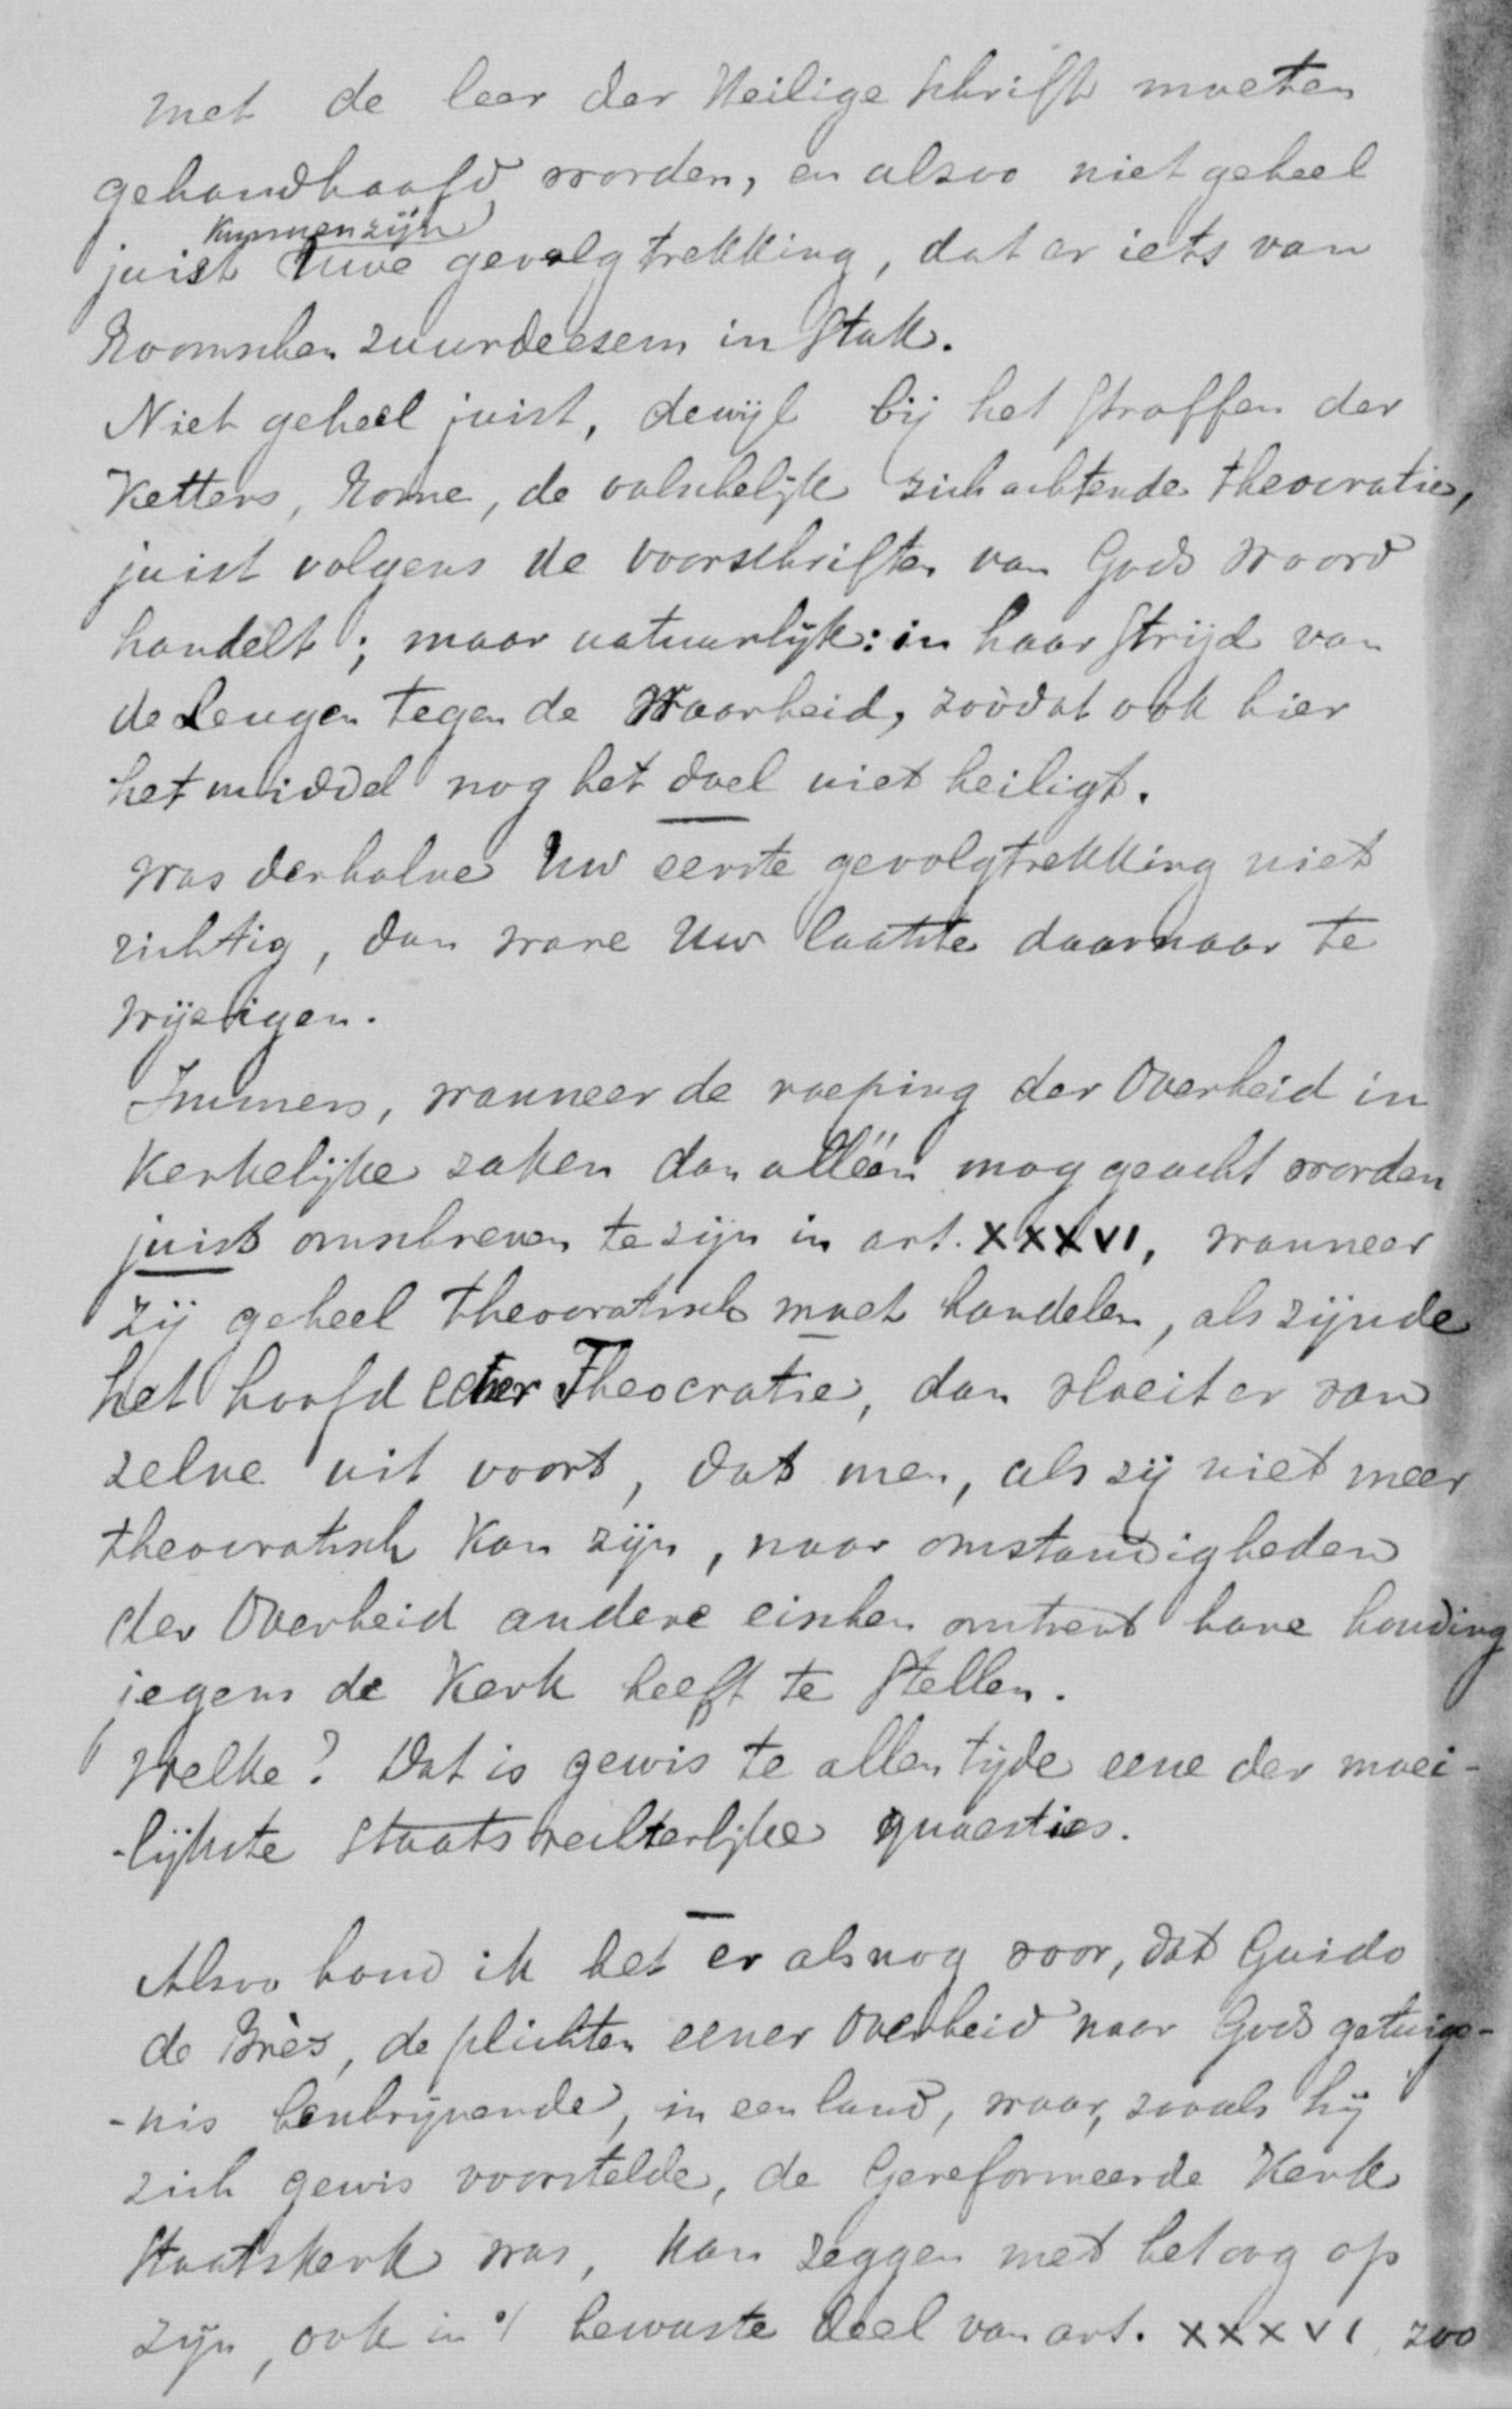 met de leer der Heilige Schrift moeten
gehandhaafd worden, en alzoo niet geheel
kunnen zijn
juist Uwe gevolgtrekking, dat er iets van
Roomschen zuurdeesem in stak.
Niet geheel juist, dewijl bij het straffen der
Ketters, Rome, de valschelijk zich achtende theocratie,
juist volgens de voorschriften van Gods Woord
handelt; maar natuurlijk: in haar strijd van
de Leugen tegen de Waarheid, zoodat ook hier
het middel nog het doel niet heiligt.
Was derhalve Uw eerste gevolgtrekking niet
richtig, dan ware Uw laatste daarnaar te
wijzigen.
Immers, wanneer de roeping der Overheid in
Kerkelijke zaken dan alléén mag geacht worden
juist omschreven te zijn in art. XXXVI, wanneer
zij geheel theocratisch moet handelen, als zijnde
het hoofd eener Theocratie, dan vloeit er van
zelve uit voort, dat men, als zij niet meer
theocratisch kan zijn, naar omstandigheden
der Overheid andere eischen omtrent hare houding
jegens de Kerk heeft te stellen.
Welke? Dat is gewis te allen tijde eene der moei-
-lijkste staatsrechterlijke quaesties.
Alzoo houd ik het er alsnog voor, dat Guido
de Brès, de plichten eener Overheid naar Gods getuige-
-nis beschrijvende, in een land, waar, zooals hij
zich gewis voorstelde, de Gereformeerde Kerk
Staatskerk was, kan zeggen met het oog op
zijn, ook in 't bewuste deel van art. XXXVI, zoo